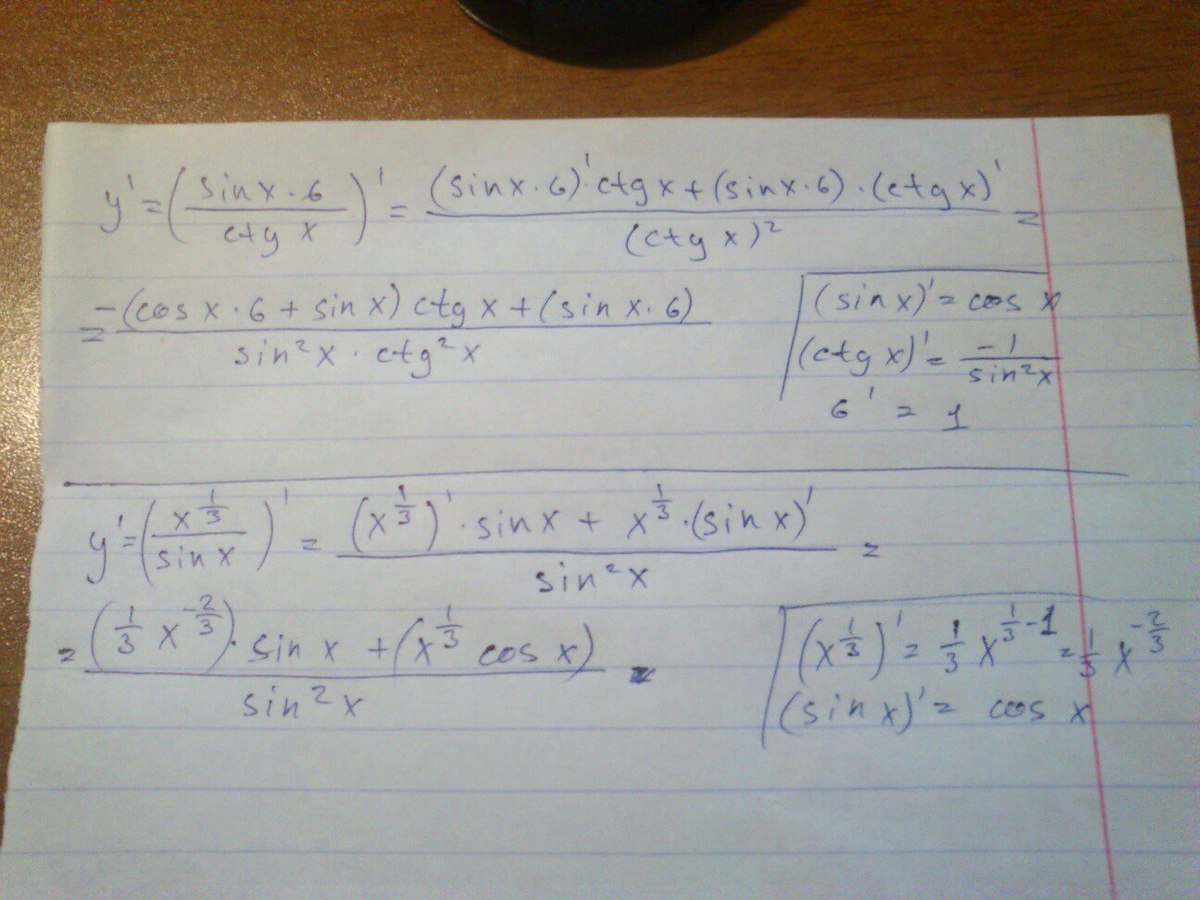 y' = (sin x · 6 / ctg x)' = (sin x · 6)' ctg x + (sin x · 6) · (ctg x)' / (ctg x)² =
= -(cos x · 6 + sin x) ctg x + (sin x · 6) / sin² x · ctg² x
(sin x)' = cos x
(ctg x)' = -1 / sin² x
6' = 1
y' = (x^(1/3) / sin x)' = (x^(1/3))' · sin x + x^(1/3) · (sin x)' / sin² x =
= (1/3 x^(-2/3)) · sin x + (x^(1/3) cos x) / sin² x =
(x^(1/3))' = 1/3 x^(1/3 - 1) = 1/3 x^(-2/3)
(sin x)' = cos x